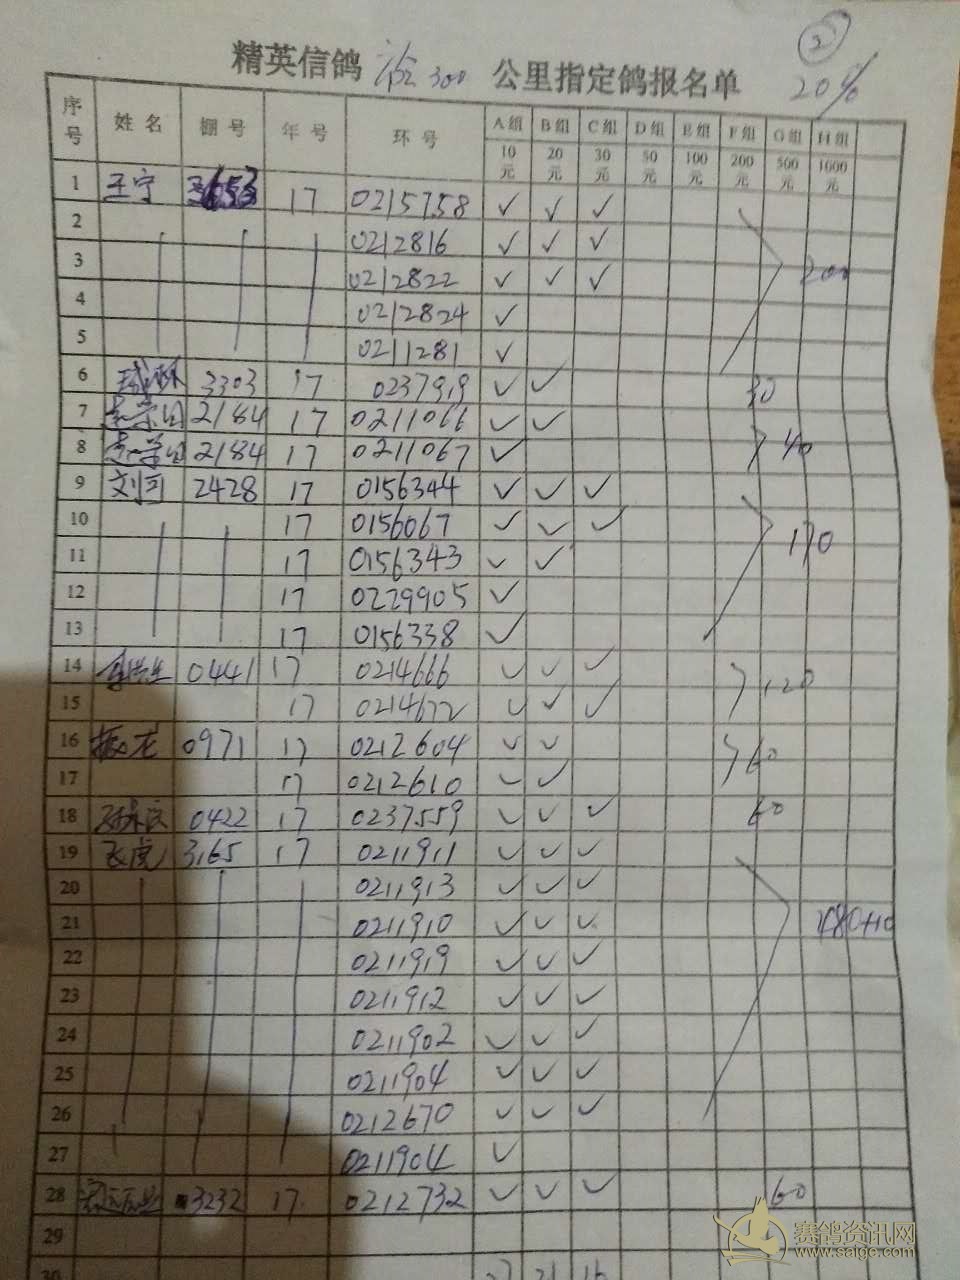 ②
精英信鸽 300 公里指定鸽报名单 20%
序号 姓名 棚号 年号 环号 A组 B组 C组 D组 E组 F组 G组 H组
10元 20元 30元 50元 100元 200元 500元 1000元
1 王宁 3653 17 0215758 ✓ ✓ ✓
2 0212816 ✓ ✓ ✓
3 0212822 ✓ ✓ ✓ 200
4 0212824 ✓
5 0211281 ✓
6 3303 17 0237919 ✓ ✓ 30
7 2184 17 0211066 ✓ ✓
8 2184 17 0211067 ✓ 40
9 刘可 2428 17 0156344 ✓ ✓ ✓
10 17 0156067 ✓ ✓ ✓
11 17 0156343 ✓ ✓ 170
12 17 0229905 ✓
13 17 0156338 ✓
14 李先生 0441 17 0214666 ✓ ✓ ✓
15 17 0214672 ✓ ✓ ✓ 120
16 振龙 0971 17 0212604 ✓ ✓
17 17 0212610 ✓ ✓ 60
18 0422 17 0237559 ✓ ✓ ✓ 60
19 飞虎 3165 17 0211911 ✓ ✓ ✓
20 0211913 ✓ ✓ ✓
21 0211910 ✓ ✓ ✓ 480+10
22 0211919 ✓ ✓ ✓
23 0211912 ✓ ✓ ✓
24 0211902 ✓ ✓ ✓
25 0211904 ✓ ✓ ✓
26 0212670 ✓ ✓ ✓
27 0211904 ✓
28 3232 17 0212732 ✓ ✓ ✓ 60
29
30 27 21 16
赛鸽资讯网
www.saigc.com